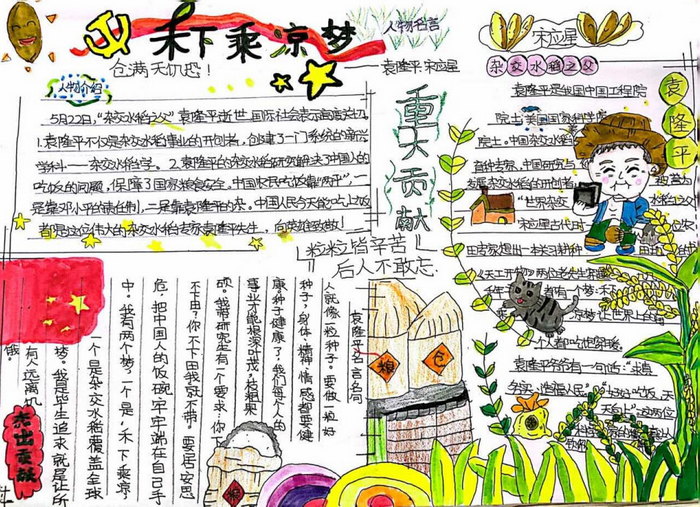 禾下乘凉梦
仓满无饥恐！
人物名言
——袁隆平.宋应星
宋应星
人物介绍
5月22日，“杂交水稻之父”袁隆平逝世，国际社会表示哀悼关切。
1.袁隆平不仅是杂交水稻事业的开创者，创建了一门系统的新兴
学科——杂交水稻学。2.袁隆平的杂交水稻研究解决了中国人的
吃饭的问题，保障了国家粮食安全。中国农民吃饭靠“两平”，一
是靠邓小平的责任制，二是靠袁隆平的杂。中国人民今天能吃上饱饭
都是这位伟大的杂交水稻专家袁隆平先生，向英雄致敬！
重大贡献
粒粒皆辛苦
后人不敢忘.
杂交水稻之父
袁隆平
袁隆平是我国中国工程院
院士,美国国家科学院
院士。中国杂交水稻
首种专家,中国研究与
发展杂交水稻的开创者
“世界杂交
水稻之父
宋应星古代时
《天工开物》两位老先生
袁隆平爷爷有一句话：
袁隆平名言名句
人就像一粒种子。要做一粒好
种子，身体、精神、情感都要健
康。种子健康了，我们每个人的
事业才能根深叶茂，枝粗果
硕。我带研究生有一个要求，你下
不下田？你不下田我就不带，要居安思
危，把中国人的饭碗牢牢端在自己手
中。我有两个梦，一个是，禾下乘凉
梦。我毕生追求就是让所
一个是杂交水稻覆盖全球
有人远离饥
饿。
杰出贡献
粮
仓
粮